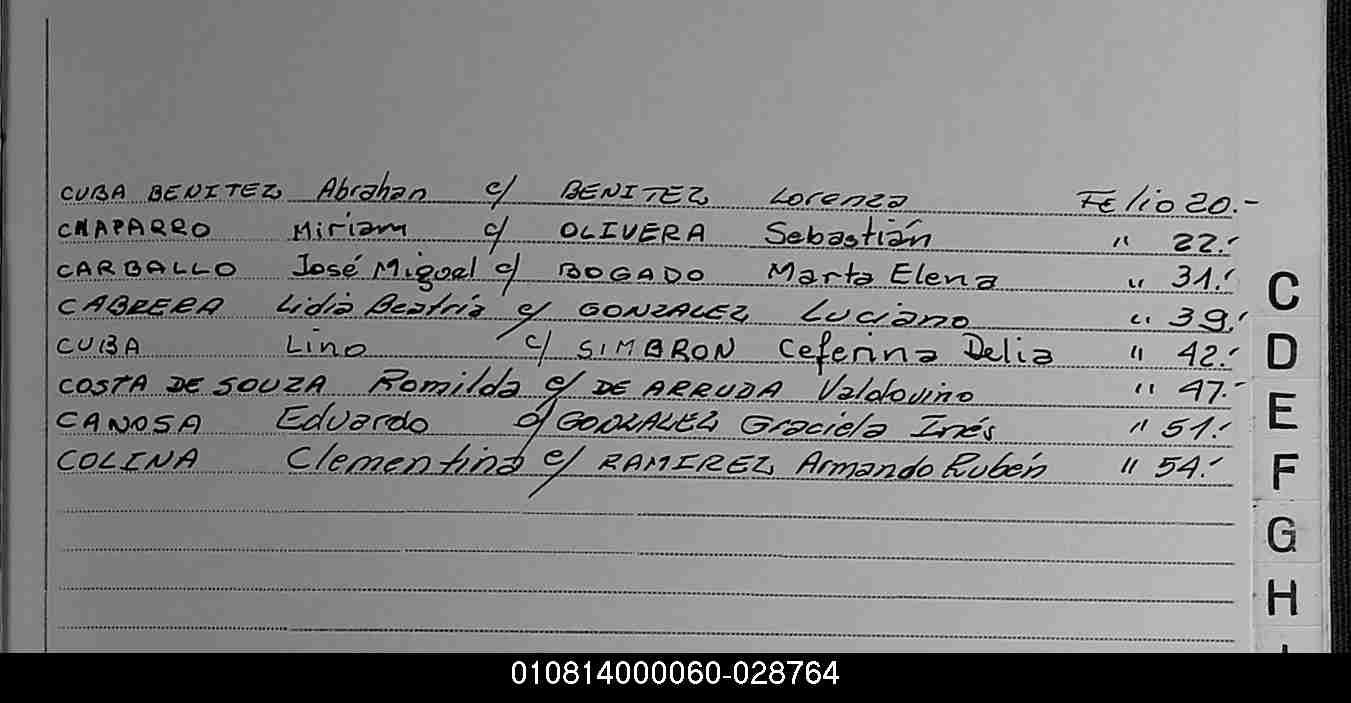 CUBA BENITEZ Abrahan c/ BENITEZ Lorenza FElio 20.-
CHAPARRO Miriam c/ OLIVERA Sebastián " 22.-
CARBALLO José Miguel c/ BOGADO Marta Elena " 31.-
CABRERA Lidia Beatriz c/ GONZALEZ Luciano " 39.-
C
CUBA Lino c/ SIMBRON Ceferina Delia " 42.-
D
COSTA DE SOUZA Romilda c/ DE ARRUDA Valdovino " 47.-
CANOSA Eduardo c/ GONZALEZ Graciela Inés " 51.-
E
COLINA Clementina c/ RAMIREZ Armando Rubén " 54.-
F
G
H
010814000060-028764